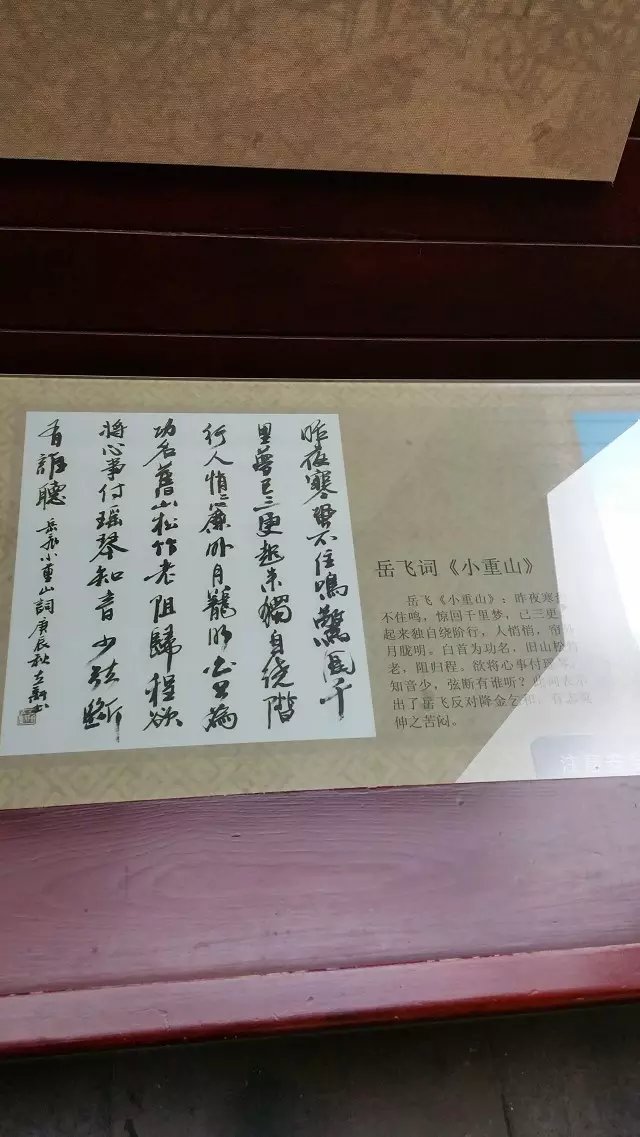 昨夜寒蛩不住鳴驚回千
里夢已三更起来獨自绕階
行人悄悄簾外月籠明白首為
功名舊山松竹老阻歸程欲
将心事付瑶琴知音少弦斷
有誰聽 岳飛小重山詞庚辰秋
岳飞词《小重山》
岳飞《小重山》：昨夜寒蛩
不住鸣，惊回千里梦，已三更
起来独自绕阶行，人悄悄，帘外
月胧明。白首为功名，旧山松竹
老，阻归程。欲将心事付瑶琴，
知音少，弦断有谁听？此词表示
出了岳飞反对降金乞和，有志难
伸之苦闷。
注意安